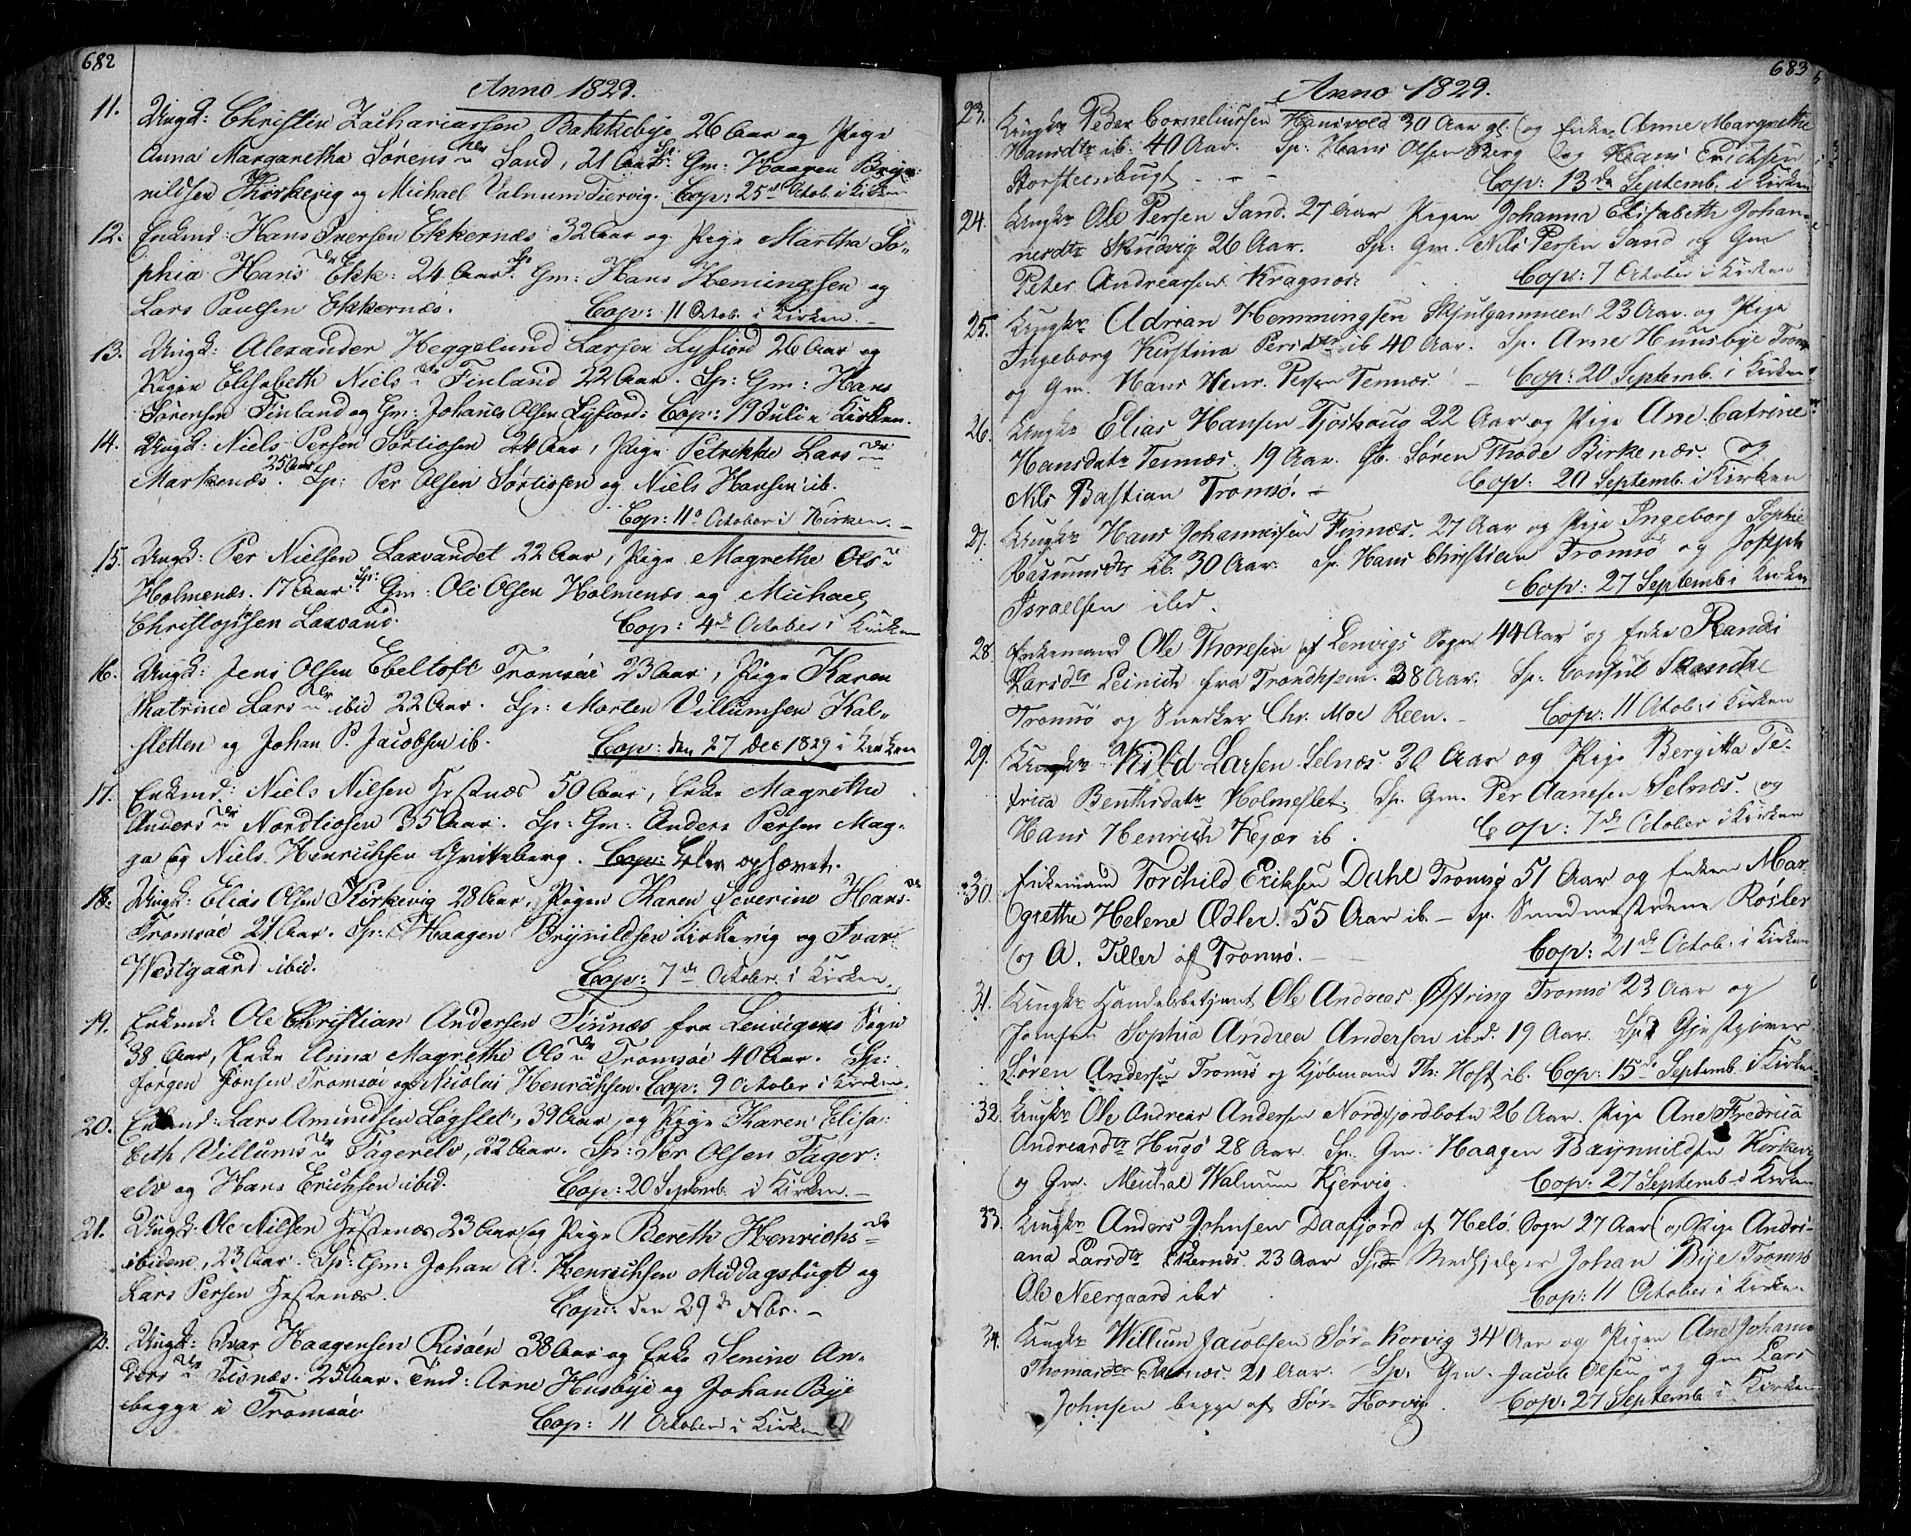 682
Anno 1829.
11. Ungk: Christen Zachariassen Bakkebye 26 Aar og Pige
Anna Margaretha Sørens dtr Sand, 21 Aar. Sp: Gm: Haagen Bryn-
nildsen Kirkevig og Michael Valnum Kiervig. Cop: 25de Octob. i Kirken
12. Enkmd: Hans Iversen Ekkernæs 32 Aar og Pige Martha So-
phia Hans dr Ekk: 24 Aar. Sp: Gm: Hans Hemingsen og
Lars Paulsen Ekkernæs. Cop: 11 Octob. i Kirken.
13. Ungk: Alexander Heggelund Larsen Lysfiord 26 Aar og
Pigen Elisabeth Niels dr Finland 22 Aar. Sp: Gm: Hans
Sørensen Finland og Gm: Johannes Olsen Lysfiord: Cop: 19 Juli i Kirken.
14. Ungk: Niels Persen Sørtiosen 24 Aar, Pige Petrikke Lars dr
Markenæs. 25 Aar Sp: Per Olsen Sørtiosen og Niels Hansen ib.
Cop: 11 October i Kirken.
15. Ungk: Per Nielsen Laxvandet 22 Aar, Pige Magrethe Ols dr
Holmenæs. 17 Aar. Sp: Gm: Ole Olsen Holmenæs og Michael
Christophsen Laxvand. Cop: 4de October i Kirken
16. Ungk: Jens Olsen Ebeltoft Tromsøe 23 Aar, Pige Karen
Katrine Lars dtr ibid 22 Aar. Sp: Morten Villumsen Kal-
sletten og Johan P. Jacobsen ib. Cop: den 27 Dec 1829 i Kirken
17. Enkmd: Niels Nilsen Hestnæs 50 Aar, Enke Magrethe
Anders dr Nordtiosen 35 Aar. Sp: Gm: Anders Persen Mag-
ga og Niels Henrichsen Cop: ophævet.
18. Ungk: Elias Olsen Kirkevig 28 Aar, Pigen Karen Severine Hans dr
Tromsøe 21 Aar. Sp: Haagen Brynildsen Kirkevig og Ivar
Westgaard ibid. Cop: 7de October i Kirken.
19. Enkmd: Ole Christian Andersen Finnæs fra Lenvigens Sogn
38 Aar, Enke Anna Magrethe Ols dr Tromsøe 40 Aar. Sp:
Jørgen Jonsen Tromsøe og Nicolai Henrichsen. Cop: 9 October i Kirken.
20. Enkmd: Lars Amundsen Lagslet, 39 Aar, og Pige Karen Elisa-
beth Villums dr Fagerelv, 22 Aar. Sp: Per Olsen Fager-
elv og Hans Erichsen ibid. Cop: 20 Septemb. i Kirken.
21. Ungk: Ole Nilsen Hestenæs 23 Aar og Pige Bereth Henrichs dr
ibidem, 23 Aar. Sp: Gm: Johan A. Henrichsen Middagsbugt og
Lars Persen Hestenæs. Cop: den 29de Nbr.
Ungk: Ivar Haagensen Risøen 38 Aar og Enke Senine An-
ders dr Tisnæs. 25 Aar. Arne Husbye og Johan Bye
begge i Tromsøe Cop: 11 October i Kirken
683
Anno 1829.
23. Ungkr Peder Corneliussen Hansvold 30 Aar gl. og Enke Anne Margrethe
Hansdtr ib. 40 Aar. Sp: Hans Olsen Berg og Hans Erichsen
Storsteenbugt Cop: 13de Septemb. i Kirken
24. Ungkr Ole Persen Sand. 27 Aar Pigen Johanna Elisabeth Johan-
nesdtr Skudvig 26 Aar. Sp: Gm. Nils Persen Sand og Gm
Peter Andreassen Kragnæs Cop: 7 October i Kirken
25. Ungkr Adrian Hemmingsen Skjulgammen 23 Aar og Pige
Ingeborg Kirstina Persdtr ib 40 Aar. Sp. Arne Huusbye Troms
og Gm. Hans Henr. Persen Tennæs. Cop: 20 Septemb. i Kirken
26. Ungkr Elias Hansen Tjoshaug 22 Aar og Pige Ane Catrine
Hansdatr Tennæs 19 Aar. Gb. Søren Thode Birkenæs og
Nils Bastian Tromsø. Cop: 20 Septemb. i Kirken
27. Ungkr Hans Johannesen Finnæs. 27 Aar og Pige Ingeborg Sophie
Rasmusdtr ib. 30 Aar. Sp. Hans Christian Tromsø og Joseph
Israelsen ibd. Cop: 27 Septemb i Kirken
28. Enkemand Ole Thoresen af Lenvigs Sogn 44 Aar og Enke Randi
Larsdtr Leinich fra Trondhjem. 38 Aar. Sp. Consul Skancke
Tromsø og Snedker Chr. Moe Reen. Cop: 11 Octob: i Kirken
29. Ungkr Kild Larsen Selnæs 30 Aar og Pige Bergitta Pe-
trica Benthsdatr Holmeslet. Sp. Gm. Per Aanesen Selnæs. og
Hans Henrich Kjær ib. Cop: 7de October i Kirken
30. Enkemand Torchild Eriksen Dahl Tromsø 51 Aar og Enken Mar-
grethe Helene Ædler. 55 Aar ib. Sp. Smedmestrene Rösler
og A. Tiller af Tromsø. Cop: 21de Octob. i Kirken
31. Ungkr Handelsbetjent Ole Andreas Østring Tromsø 23 Aar og
Jomfru Sophia Andrea Andersen ibd. 19 Aar. Sp: Gjestgiver
Søren Andersen Tromsø og Kjøbmand Th: Holst ib. Cop: 15de Septemb. i Kirken
32. Ungkr Ole Andreas Andersen Nordfjordbotn 26 Aar. Pige Ane Fredrica
Andreasdtr Hugø 28 Aar Sp. Gm. Haagen Brynnildsen Kirkevig
og Gm. Michal Walnum Kjervig. Cop: 27 Septemb i Kirken
33. Ungkr Anders Johnsen Daafjord af Helø Sogn 27 Aar og Pige Andri-
ana Larsdtr Ekernæs 23 Aar Sp: Medhjelper Johan Bye Tromsø
Ole Neergaard ibd Cop: 11 October i Kirken
34. Ungkr Willum Jacobsen Sør-Korvig 34 Aar og Pigen Ane Johanna
Thomasdtr 21 Aar. Sp. Gm. Jacob Olsen og Gm Lars
Johnsen begge af Sør-Korvig. Cop: 27 Septemb i Kirken